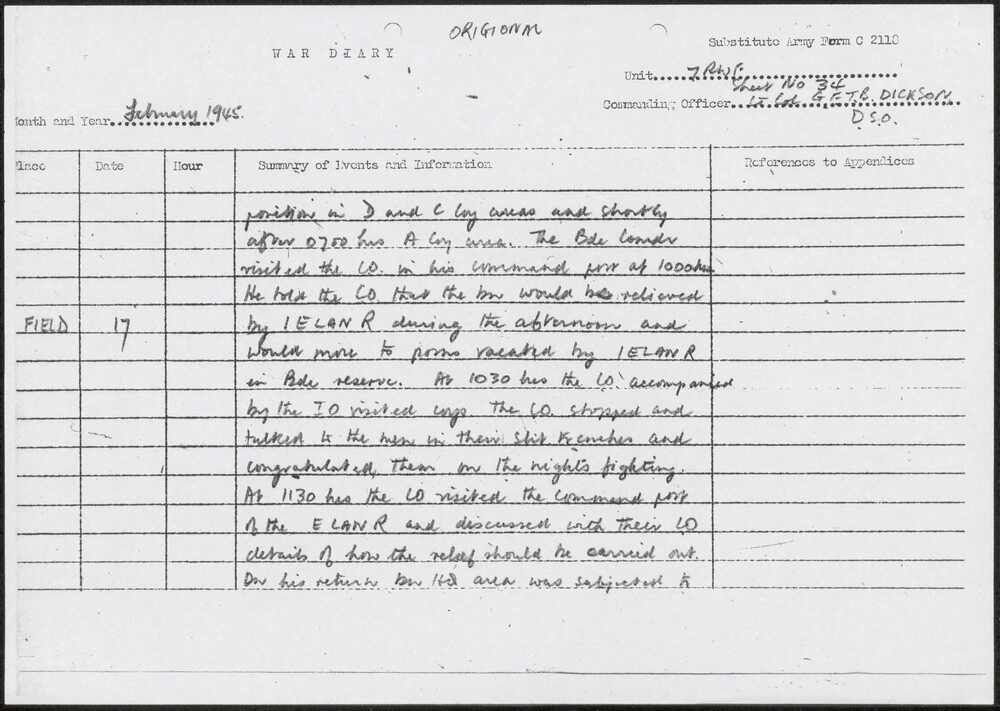 ORIGIONAL
WAR DIARY
Substitute Army Form C 2118
Unit 7 RWF.
Sheet No 34
Commanding Officer Lt Col. G.F.T.B. DICKSON,
D.S.O.
Month and Year February 1945.
Place Date Hour Summary of Events and Information References to Appendices
position in D and C Coy areas and shortly
after 0700 hrs A Coy area. The Bde Comdr
visited the CO. in his command post at 1000hrs
He told the CO that the bn would be relieved
FIELD 17 by 1 E LAN R during the afternoon and
would move to posns vacated by 1 E LAN R
in Bde reserve. At 1030 hrs the CO. accompanied
by the IO visited coys. The CO. stopped and
talked to the men in their slit trenches and
congratulated them on the nights fighting.
At 1130 hrs the CO visited the command post
of the E LAN R and discussed with their CO
details of how the relief should be carried out.
On his return bn HQ area was subjected to